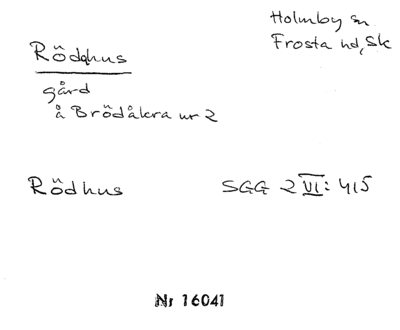 Holmby sn
Frosta hd, Sk
Rödhus
gård
å Brödåkra nr 2
Rödhus
SGG 2 VI: 415
Nr 16041